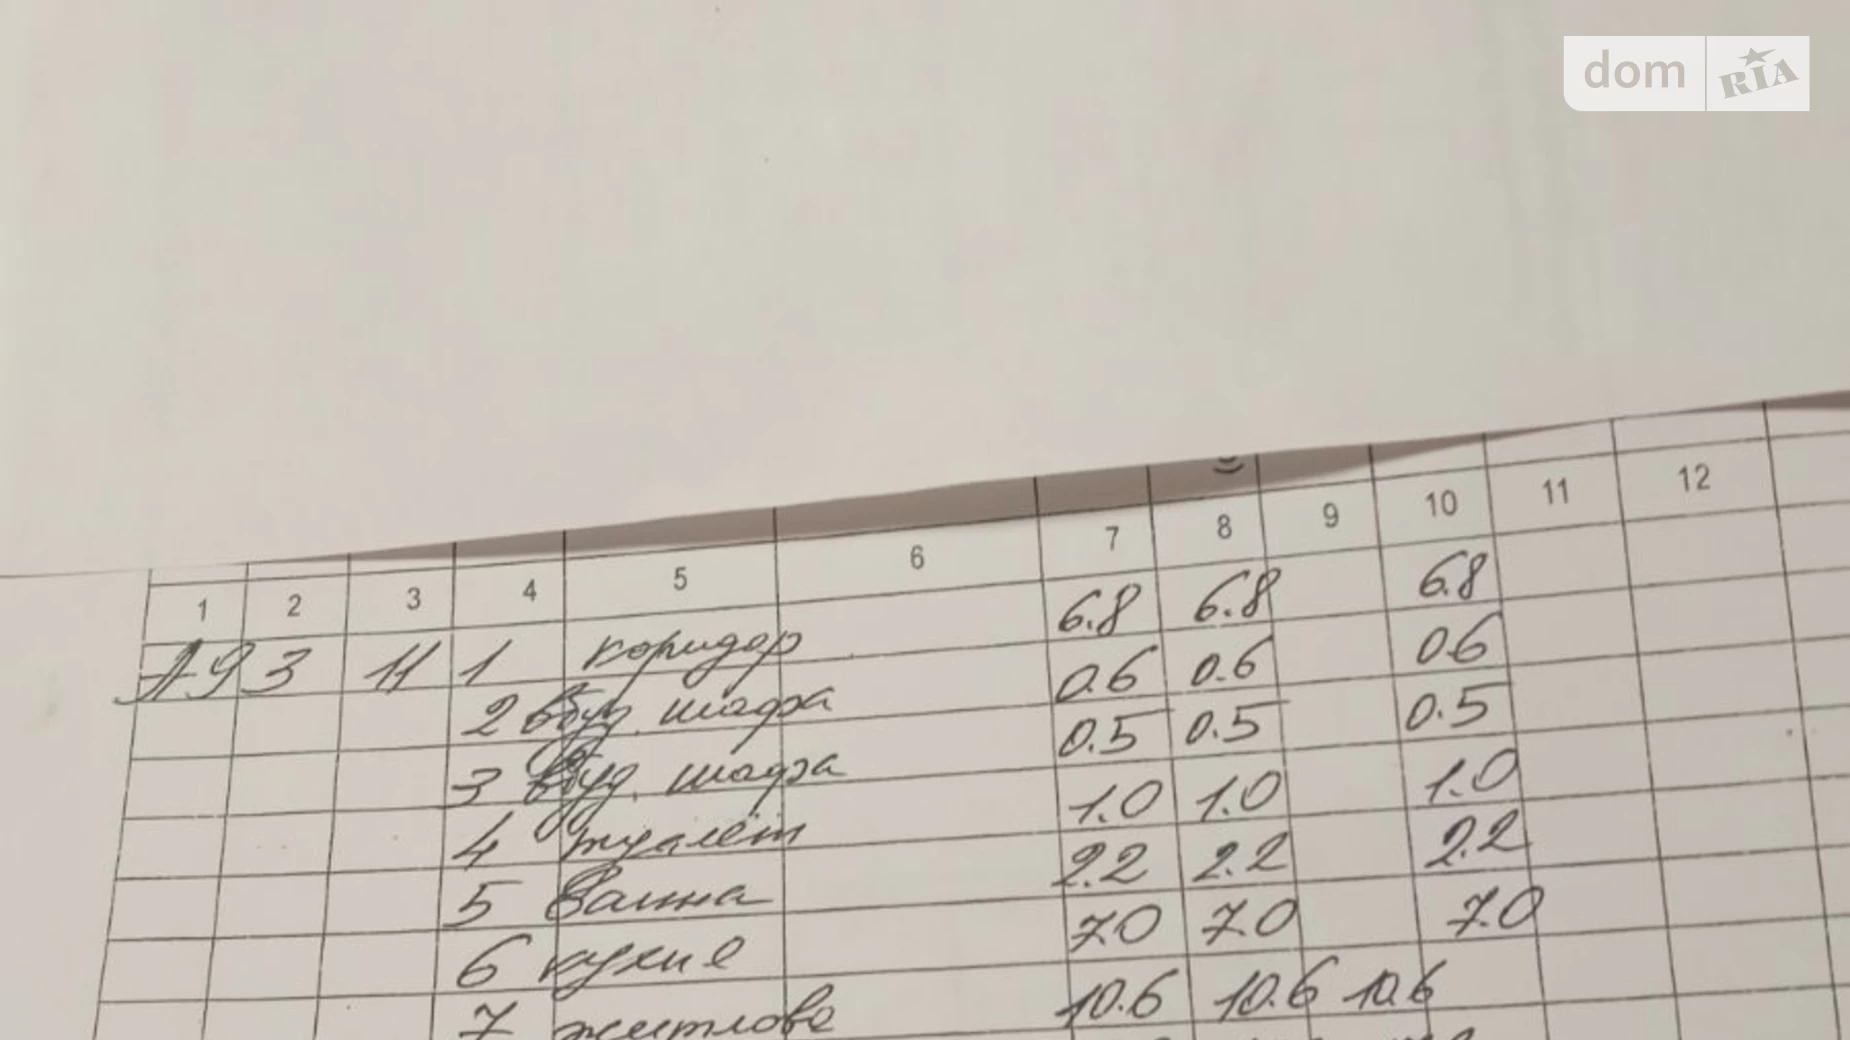 dom RIA
1 2 3 4 5 6 7 8 9 10 11 12
А9 3 11 1 коридор 6.8 6.8 6.8
2 вбуд. шафа 0.6 0.6 0.6
3 вбуд. шафа 0.5 0.5 0.5
4 туалет 1.0 1.0 1.0
5 ванна 2.2 2.2 2.2
6 кухня 7.0 7.0 7.0
7 житлове 10.6 10.6 10.6